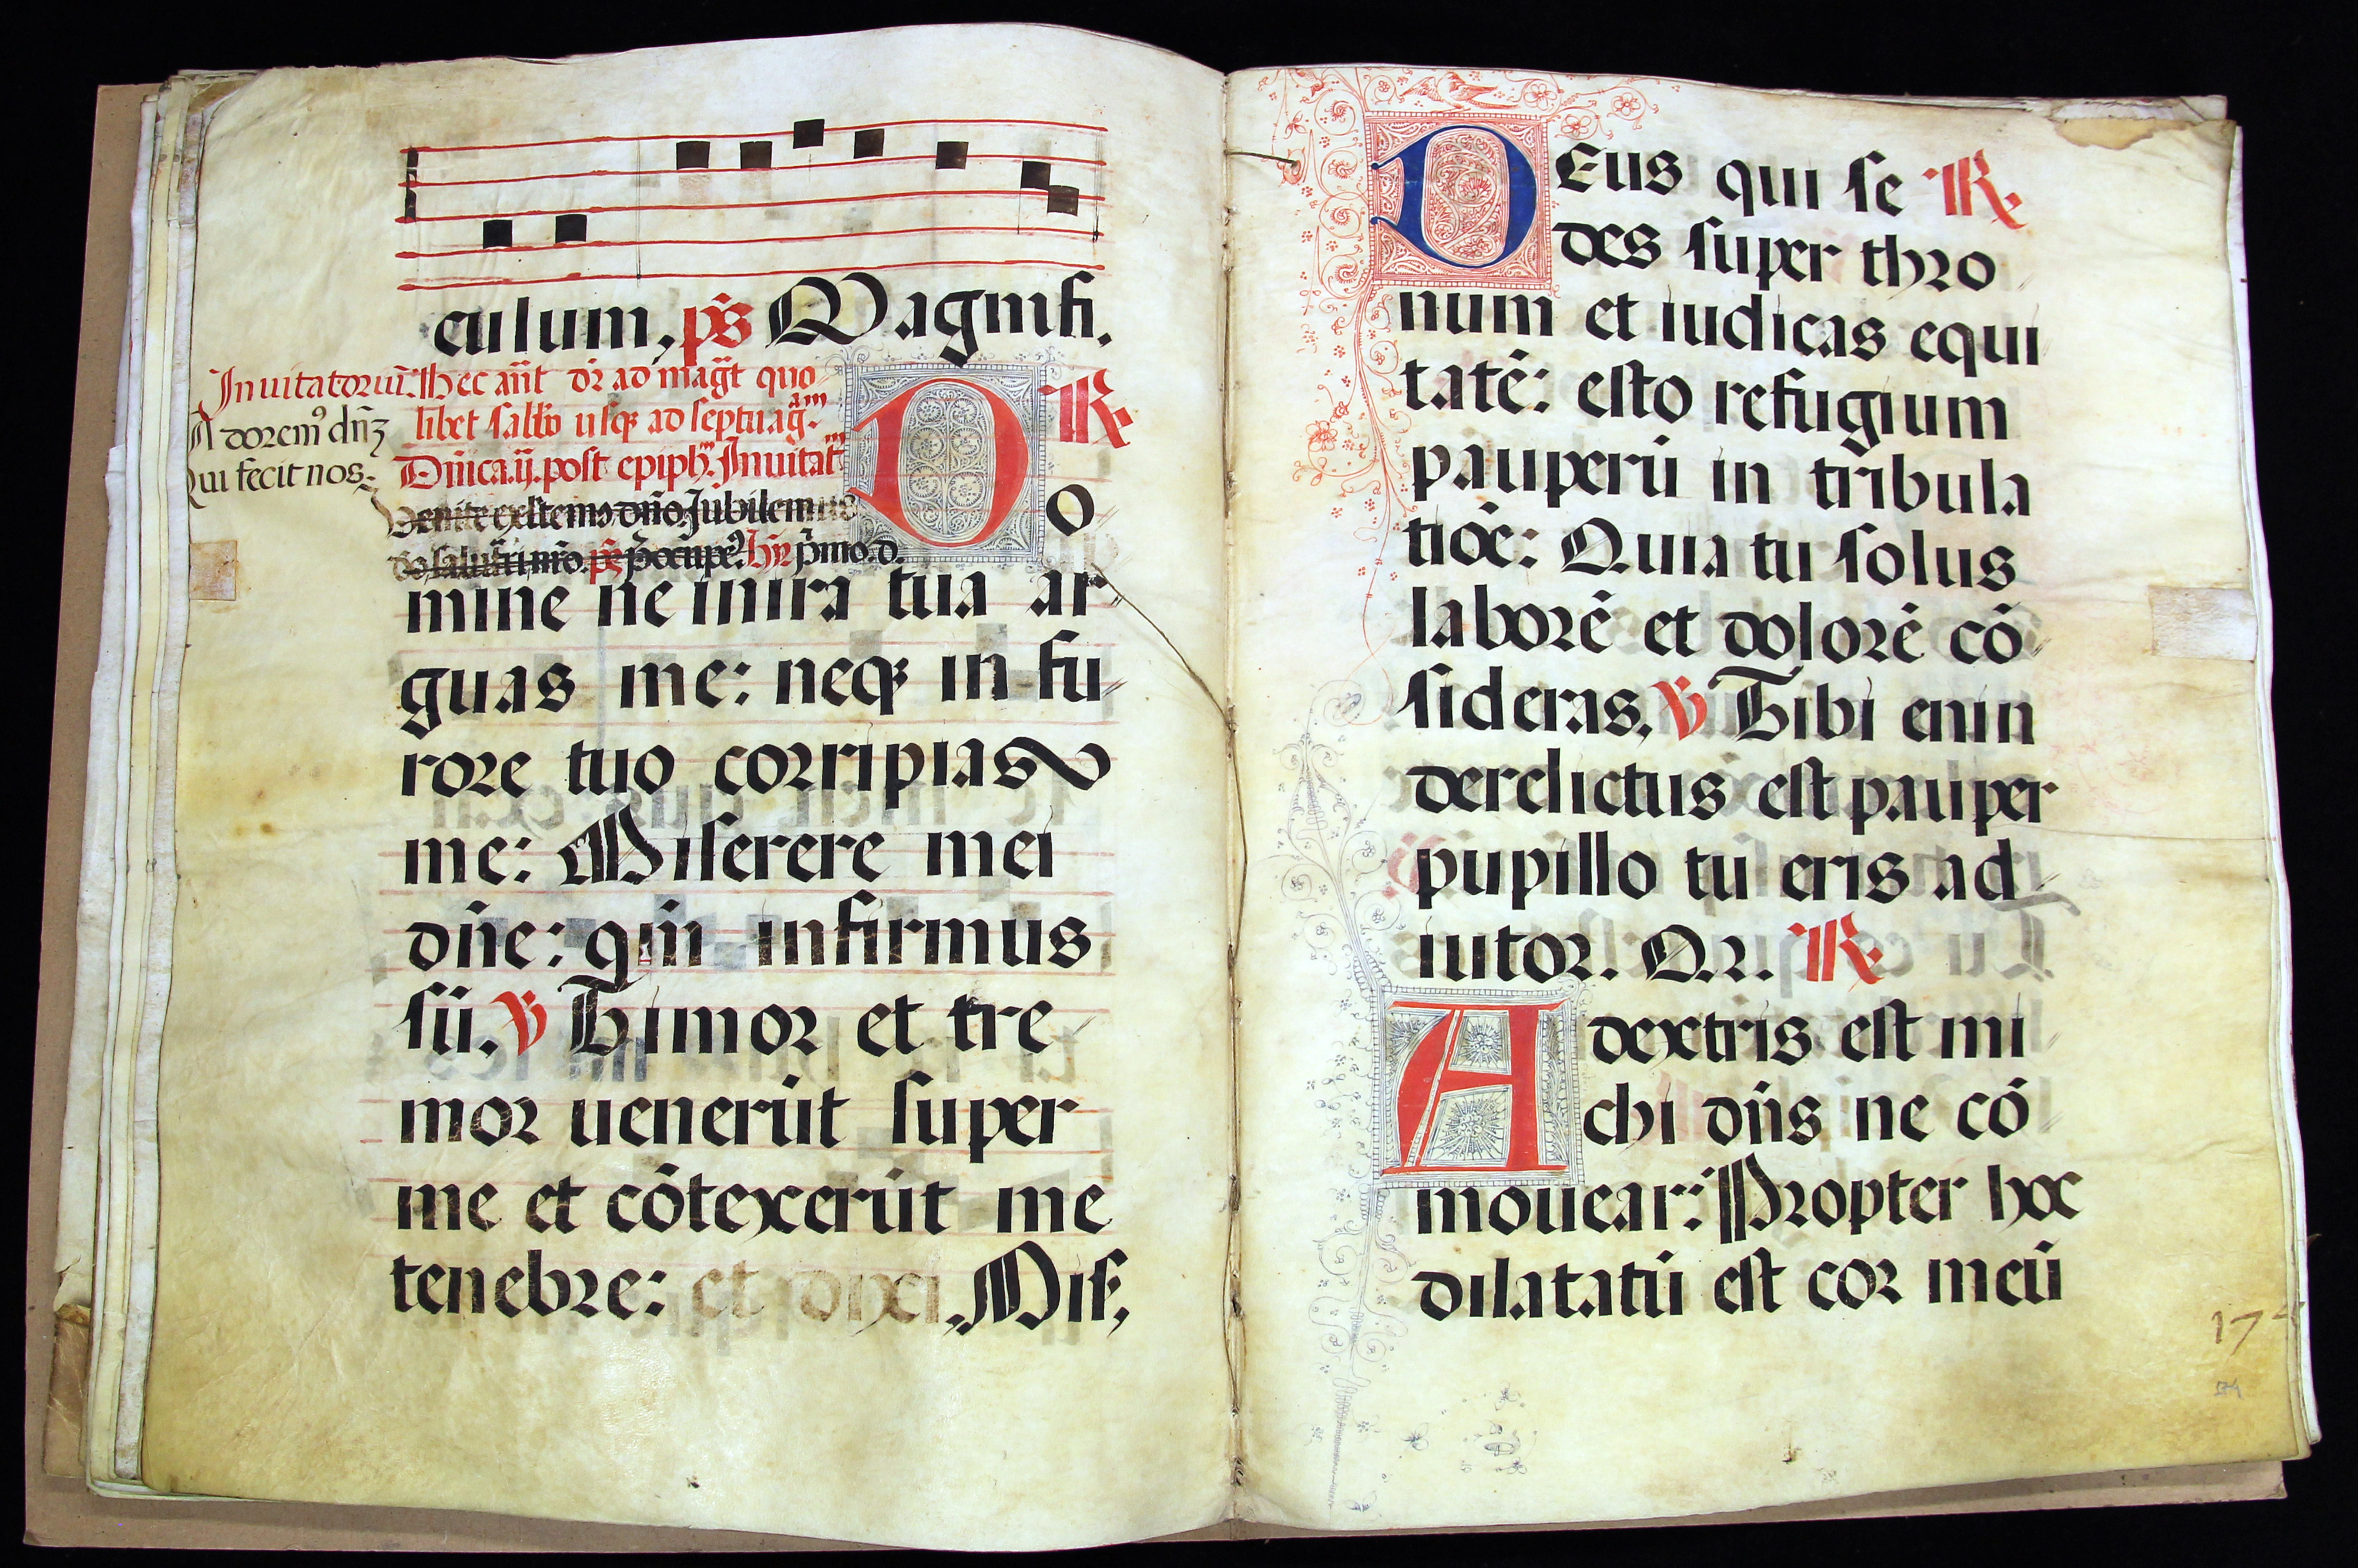 culum, p̄s Magnifi.
Inuitatoriū. Hec an̄t dr̄ ad maḡt quo
Adorem⁹ dn̄ꝫ libet sabb̄o usqꝫ ad septuag.ām
Qui fecit nos. Dn̄ica.ij. post epiph. Inuitat
Venite exultem⁹ dn̄o Jubilemus
do saluta̅ri nr̄o. p̄s p̄ocupe. hȳ p̄mo.d.
R.
DO
mine ne in ira tua ar
guas me: neqꝫ in fu
rore tuo corripias
me: Miserere mei
dn̄e: qm̄ infirmus
sū. V Timor et tre
mor uenerūt super
me et cōtexerūt me
tenebre: et dixi. Mis.
DEus qui se R.
des super thro
num et iudicas equi
tatē: esto refugium
pauperū in tribula
tiōe: Quia tu solus
laborē et dolorē cō
sideras. V Tibi enin
derelictus est pauper
pupillo tu eris ad
iutor. Q.2. R.
A dextris est mi
chi dn̄s ne cō
mouear: Propter hoc
dilatatū est cor meū